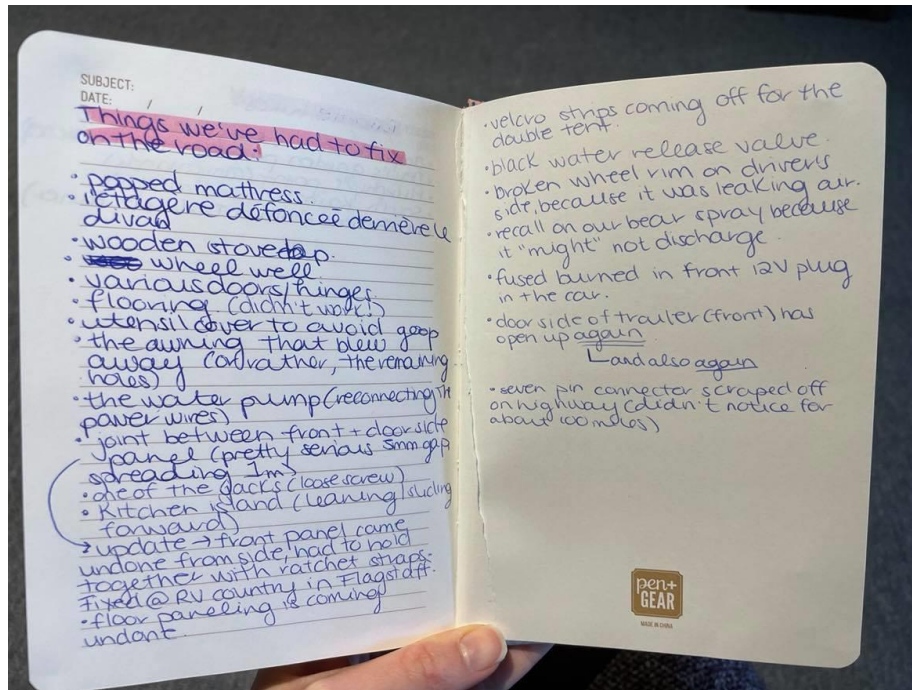 SUBJECT:
DATE: / /
Things we've had to fix
on the road:
• popped mattress.
• l'étagère défoncée derrière le
divan
• wooden stovetop.
• wheel well
• various doors/hinges
• flooring (didn't work!)
• utensil cover to avoid goop
• the awning that blew
away (or rather, the remaining
holes)
• the water pump (reconnecting the
power wires)
• joint between front + door side
panel (pretty serious 5mm gap
spreading 1m)
• one of the jacks (loose screw)
• Kitchen island (leaning/sliding
forward)
→ update → front panel came
undone from side, had to hold
together with ratchet straps.
Fixed @ RV country in Flagstaff.
• floor paneling is coming
undone.
• velcro strips coming off for the
double tent.
• black water release valve.
• broken wheel rim on driver's
side, because it was leaking air.
• recall on our bear spray because
it "might" not discharge.
• fused burned in front 12V plug
in the car.
• door side of trailer (front) has
open up again
and also again
• seven pin connector scraped off
on highway (didn't notice for
about 100 miles)
pen+
GEAR
MADE IN CHINA